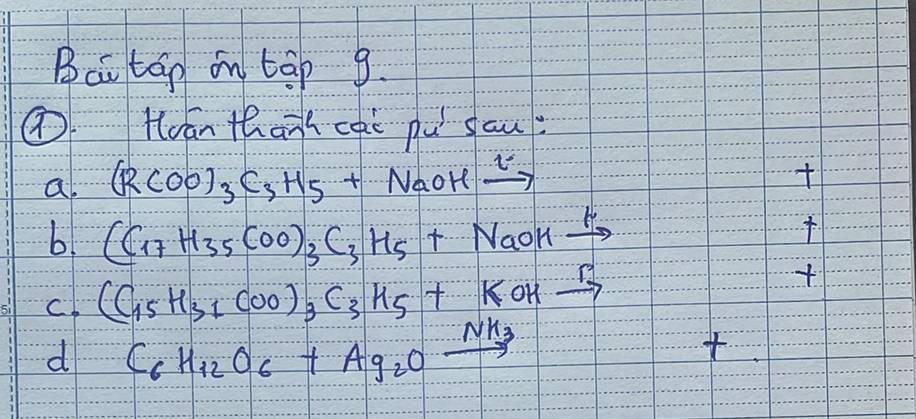 Bài tập ôn tập 9.
①. Hoàn thành các pứ sau:
a. (RCOO)₃C₃H₅ + NaOH —t°→ +
b. (C₁₇H₃₅COO)₃C₃H₅ + NaOH —t°→ +
c. (C₁₅H₃₁COO)₃C₃H₅ + KOH —t°→ +
d C₆H₁₂O₆ + Ag₂O —NH₃→ + .